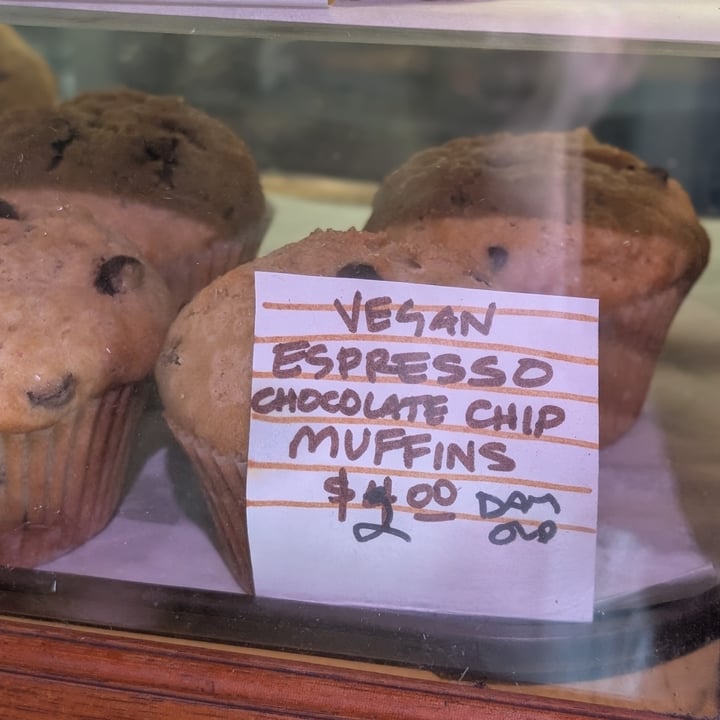 VEGAN
ESPRESSO
CHOCOLATE CHIP
MUFFINS
$2.00 DAY
OLD